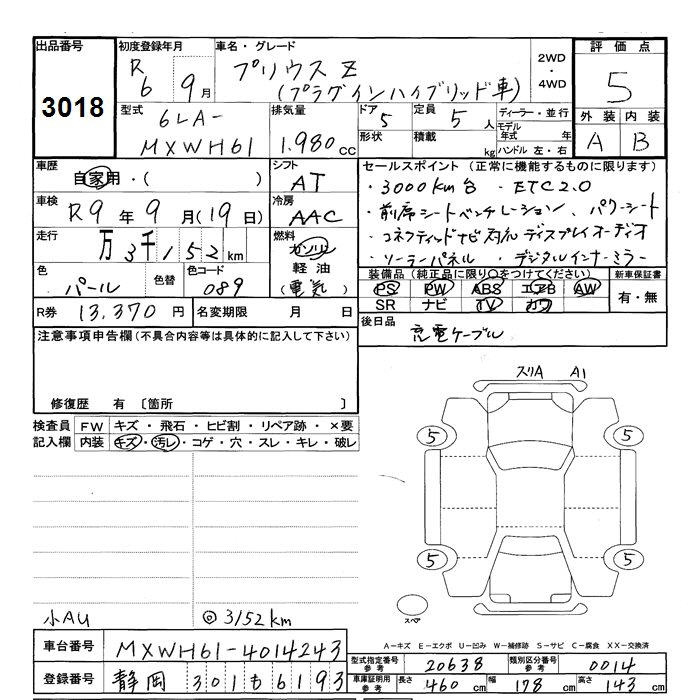 出品番号 初度登録年月 車名・グレード 2WD・4WD 評価点
3018 R6年 9月 プリウス Z (プラグインハイブリッド車) 5
型式 6LA-MXWH61 排気量 1.980cc ドア 5 定員 5人 ディーラー・並行 外装 A 内装 B
形状 積載 kg モデル年式 年 ハンドル 左・右
車歴 自家用・( ) シフト AT セールスポイント (正常に機能するものに限ります)
・3000km台 ・ETC2.0
車検 R9年9月(19日) 冷房 AAC ・前席シートベンチレーション、パワーシート
走行 万3千152km 燃料 ガソリン ・コネクティッドナビ対応ディスプレイオーディオ
軽油 ・ソーラーパネル ・デジタルインナーミラー
色 パール 色替 色コード 089 (電気) 装備品 (純正品に限り○をつけてください) 新車保証書
PS PW ABS エアB AW 有・無
SR ナビ TV カワ
R券 13,370円 名変期限 月 日 後日品 充電ケーブル
注意事項申告欄(不具合内容等は具体的に記入して下さい)
修復歴 有 〔箇所 〕
スリA A1
検査員 FW キズ・飛石・ヒビ割・リペア跡・×要
記入欄 内装 キズ・汚レ・コゲ・穴・スレ・キレ・破レ
5 5
5 5
スペア
小AU ◎3152km
A-キズ E-エクボ U-凹み W-補修跡 S-サビ C-腐食 XX-交換済
車台番号 MXWH61-4014243 型式指定番号 参考 20638 類別区分番号 参考 0014
登録番号 静岡 301 も 6193 車庫証明用 参考 長さ 460cm 幅 178cm 高さ 143cm